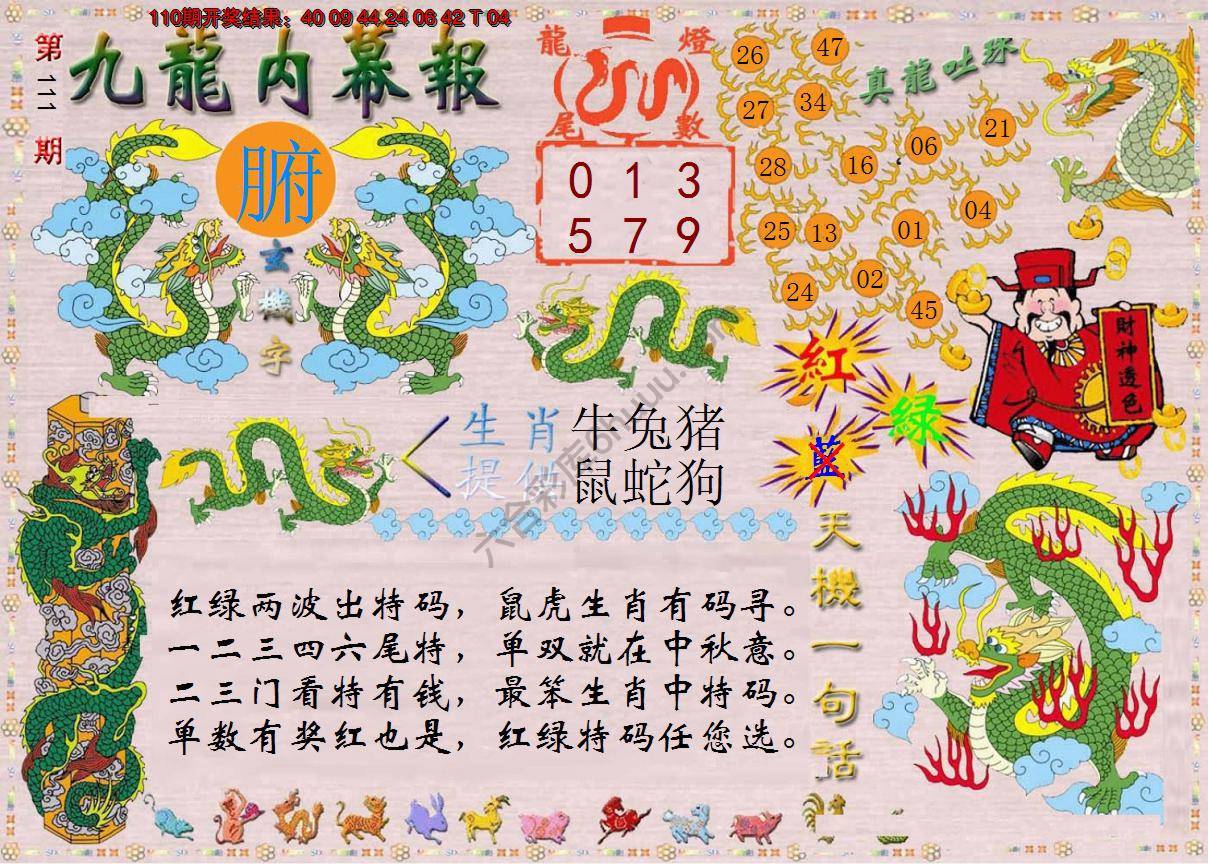 110期开奖结果：40 09 44 24 06 42 T 04
第111期
九龍内幕報
腑
玄機字
龍燈尾數
0 1 3
5 7 9
真龍吐珠
26
47
27
34
21
06
28
16
04
25
13
01
02
24
45
財神透色
紅
綠
藍
生肖
牛兔猪
提供
鼠蛇狗
天機一句話
红绿两波出特码，鼠虎生肖有码寻。
一二三四六尾特，单双就在中秋意。
二三门看特有钱，最笨生肖中特码。
单数有奖红也是，红绿特码任您选。